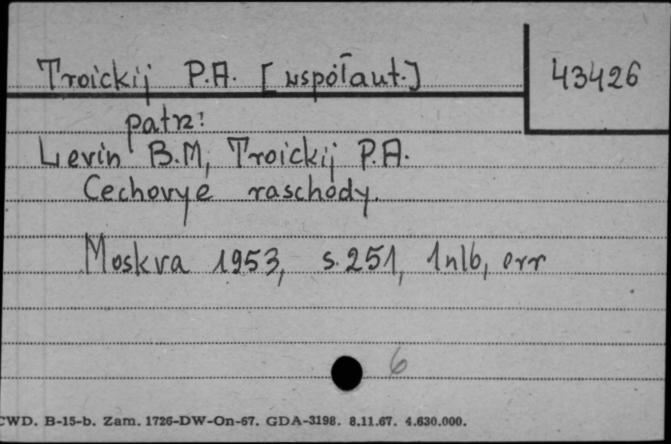 Troickij P.A. [współaut.] 43426
patrz:
Levin B.M, Troickij P.A.
Cechovye raschody.
Moskva 1953, s. 251, 1 nlb, err
6
CWD. B-15-b. Zam. 1726-DW-On-67. GDA-3198. 8.11.67. 4.630.000.